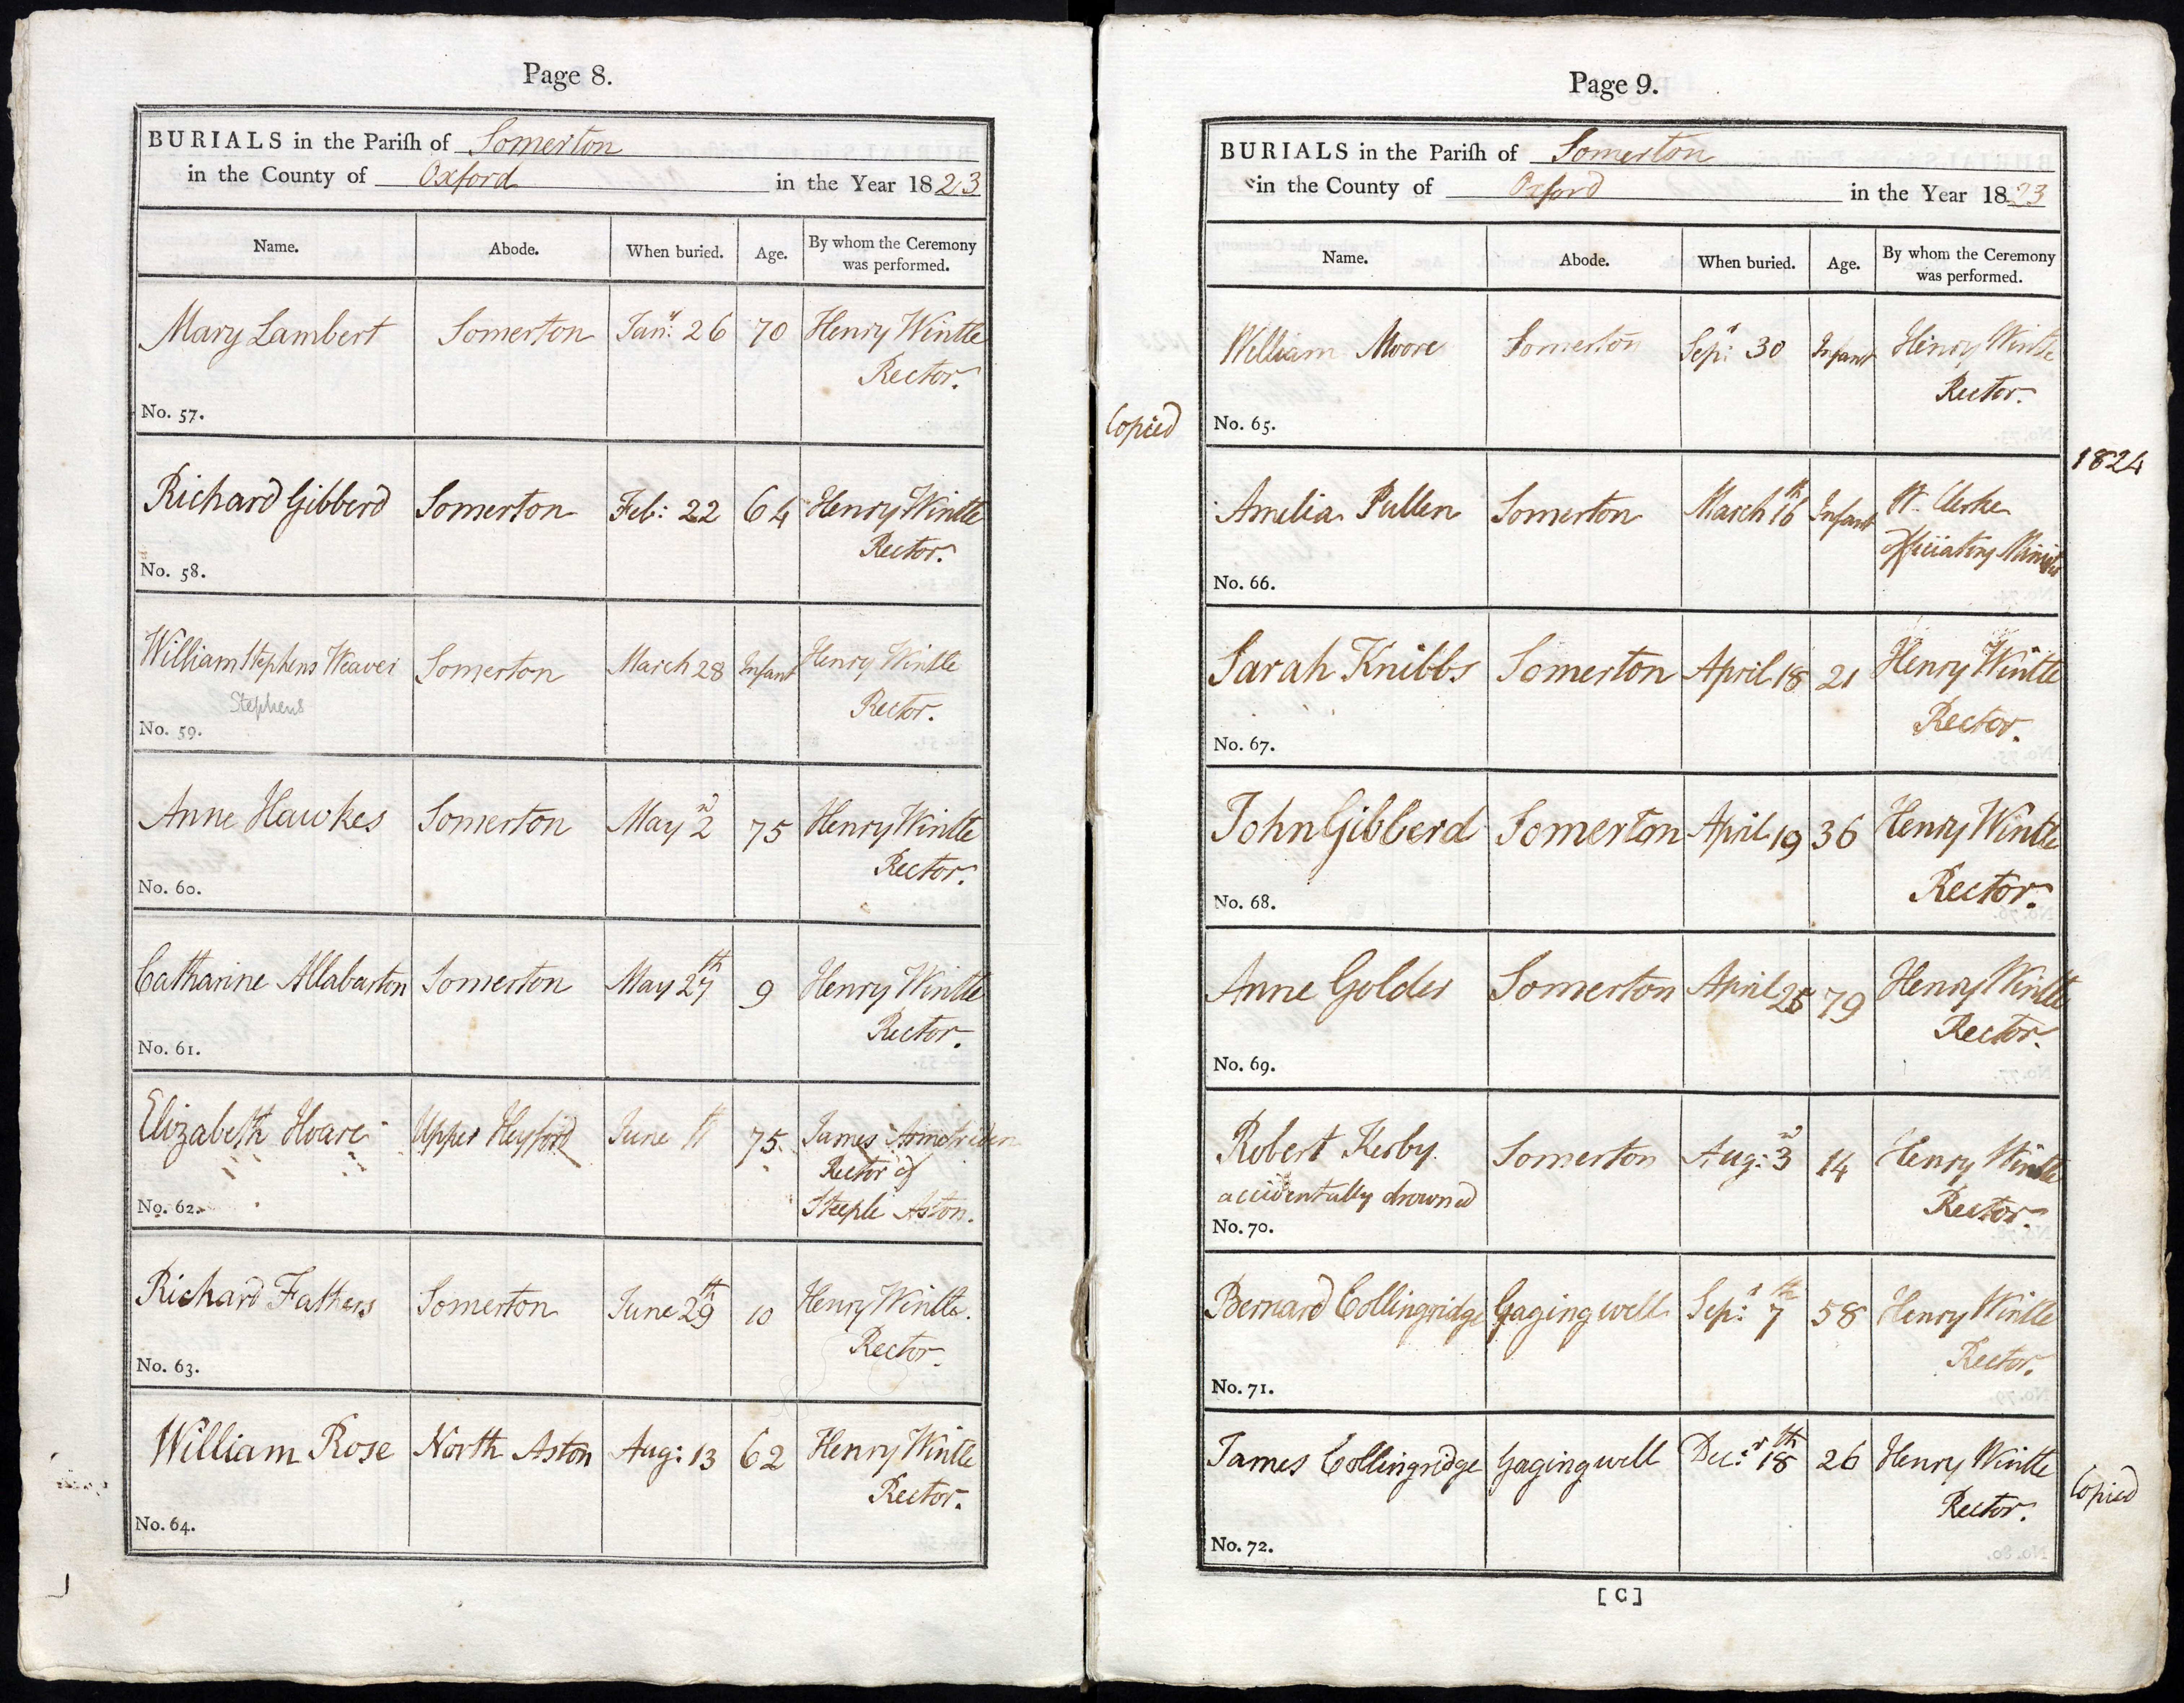 Page 8.
BURIALS in the Pariſh of Somerton
in the County of Oxford in the Year 1823
Name. Abode. When buried. Age. By whom the Ceremony
was performed.
Mary Lambert Somerton Jan.y 26 70 Henry Wintle
Rector.
No. 57.
Richard Gibberd Somerton Feb: 22 64 Henry Wintle
Rector.
No. 58.
William Stephens Weaver Somerton March 28 Infant Henry Wintle
Stephens Rector.
No. 59.
Anne Hawkes Somerton May 2d 75 Henry Wintle
Rector.
No. 60.
Catharine Allabarton Somerton May 27th 9 Henry Wintle
Rector.
No. 61.
Elizabeth Hoare Upper Heyford June 11 75 James Armetriden
Rector of
No. 62. Steeple Aston.
Richard Fathers Somerton June 29th 10 Henry Wintle.
Rector.
No. 63.
William Rose North Aston Aug: 13 62 Henry Wintle
Rector.
No. 64.
Page 9.
BURIALS in the Pariſh of Somerton
in the County of Oxford in the Year 1823
Name. Abode. When buried. Age. By whom the Ceremony
was performed.
William Moore Somerton Sep:r 30 Infant Henry Wintle
Rector.
Copied No. 65.
1824
Amelia Pullen Somerton March 16th Infant W. Clerke
officiating Minister
No. 66.
Sarah Knibbs Somerton April 18 21 Henry Wintle
Rector.
No. 67.
John Gibberd Somerton April 19 36 Henry Wintle
Rector.
No. 68.
Anne Golder Somerton April 25 79 Henry Wintle
Rector.
No. 69.
Robert Kerby. Somerton Aug: 3d 14 Henry Wintle
accidentally drowned Rector.
No. 70.
Bernard Collingridge Gagingwell Sep:r 7th 58 Henry Wintle
Rector.
No. 71.
James Collingridge Gagingwell Dec:r 18th 26 Henry Wintle
Rector. Copied
No. 72.
[ C ]